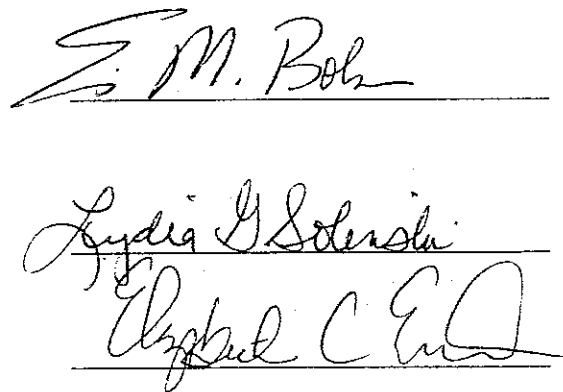 M. Bohn
Lydia G Solenski
Elizabeth C